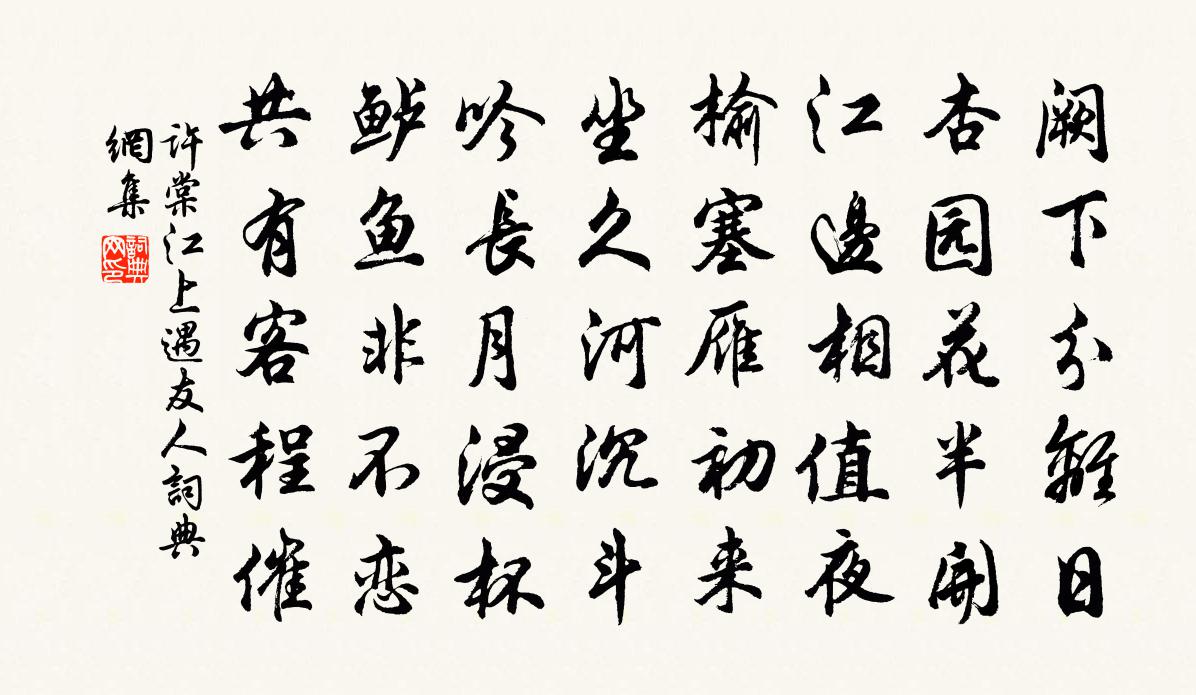 阙下分離日
杏园花半開
江邊相值夜
榆塞雁初来
坐久河沉斗
吟長月浸杯
鲈鱼非不恋
共有客程催
許棠江上遇友人詞典
網集
詞典
网印